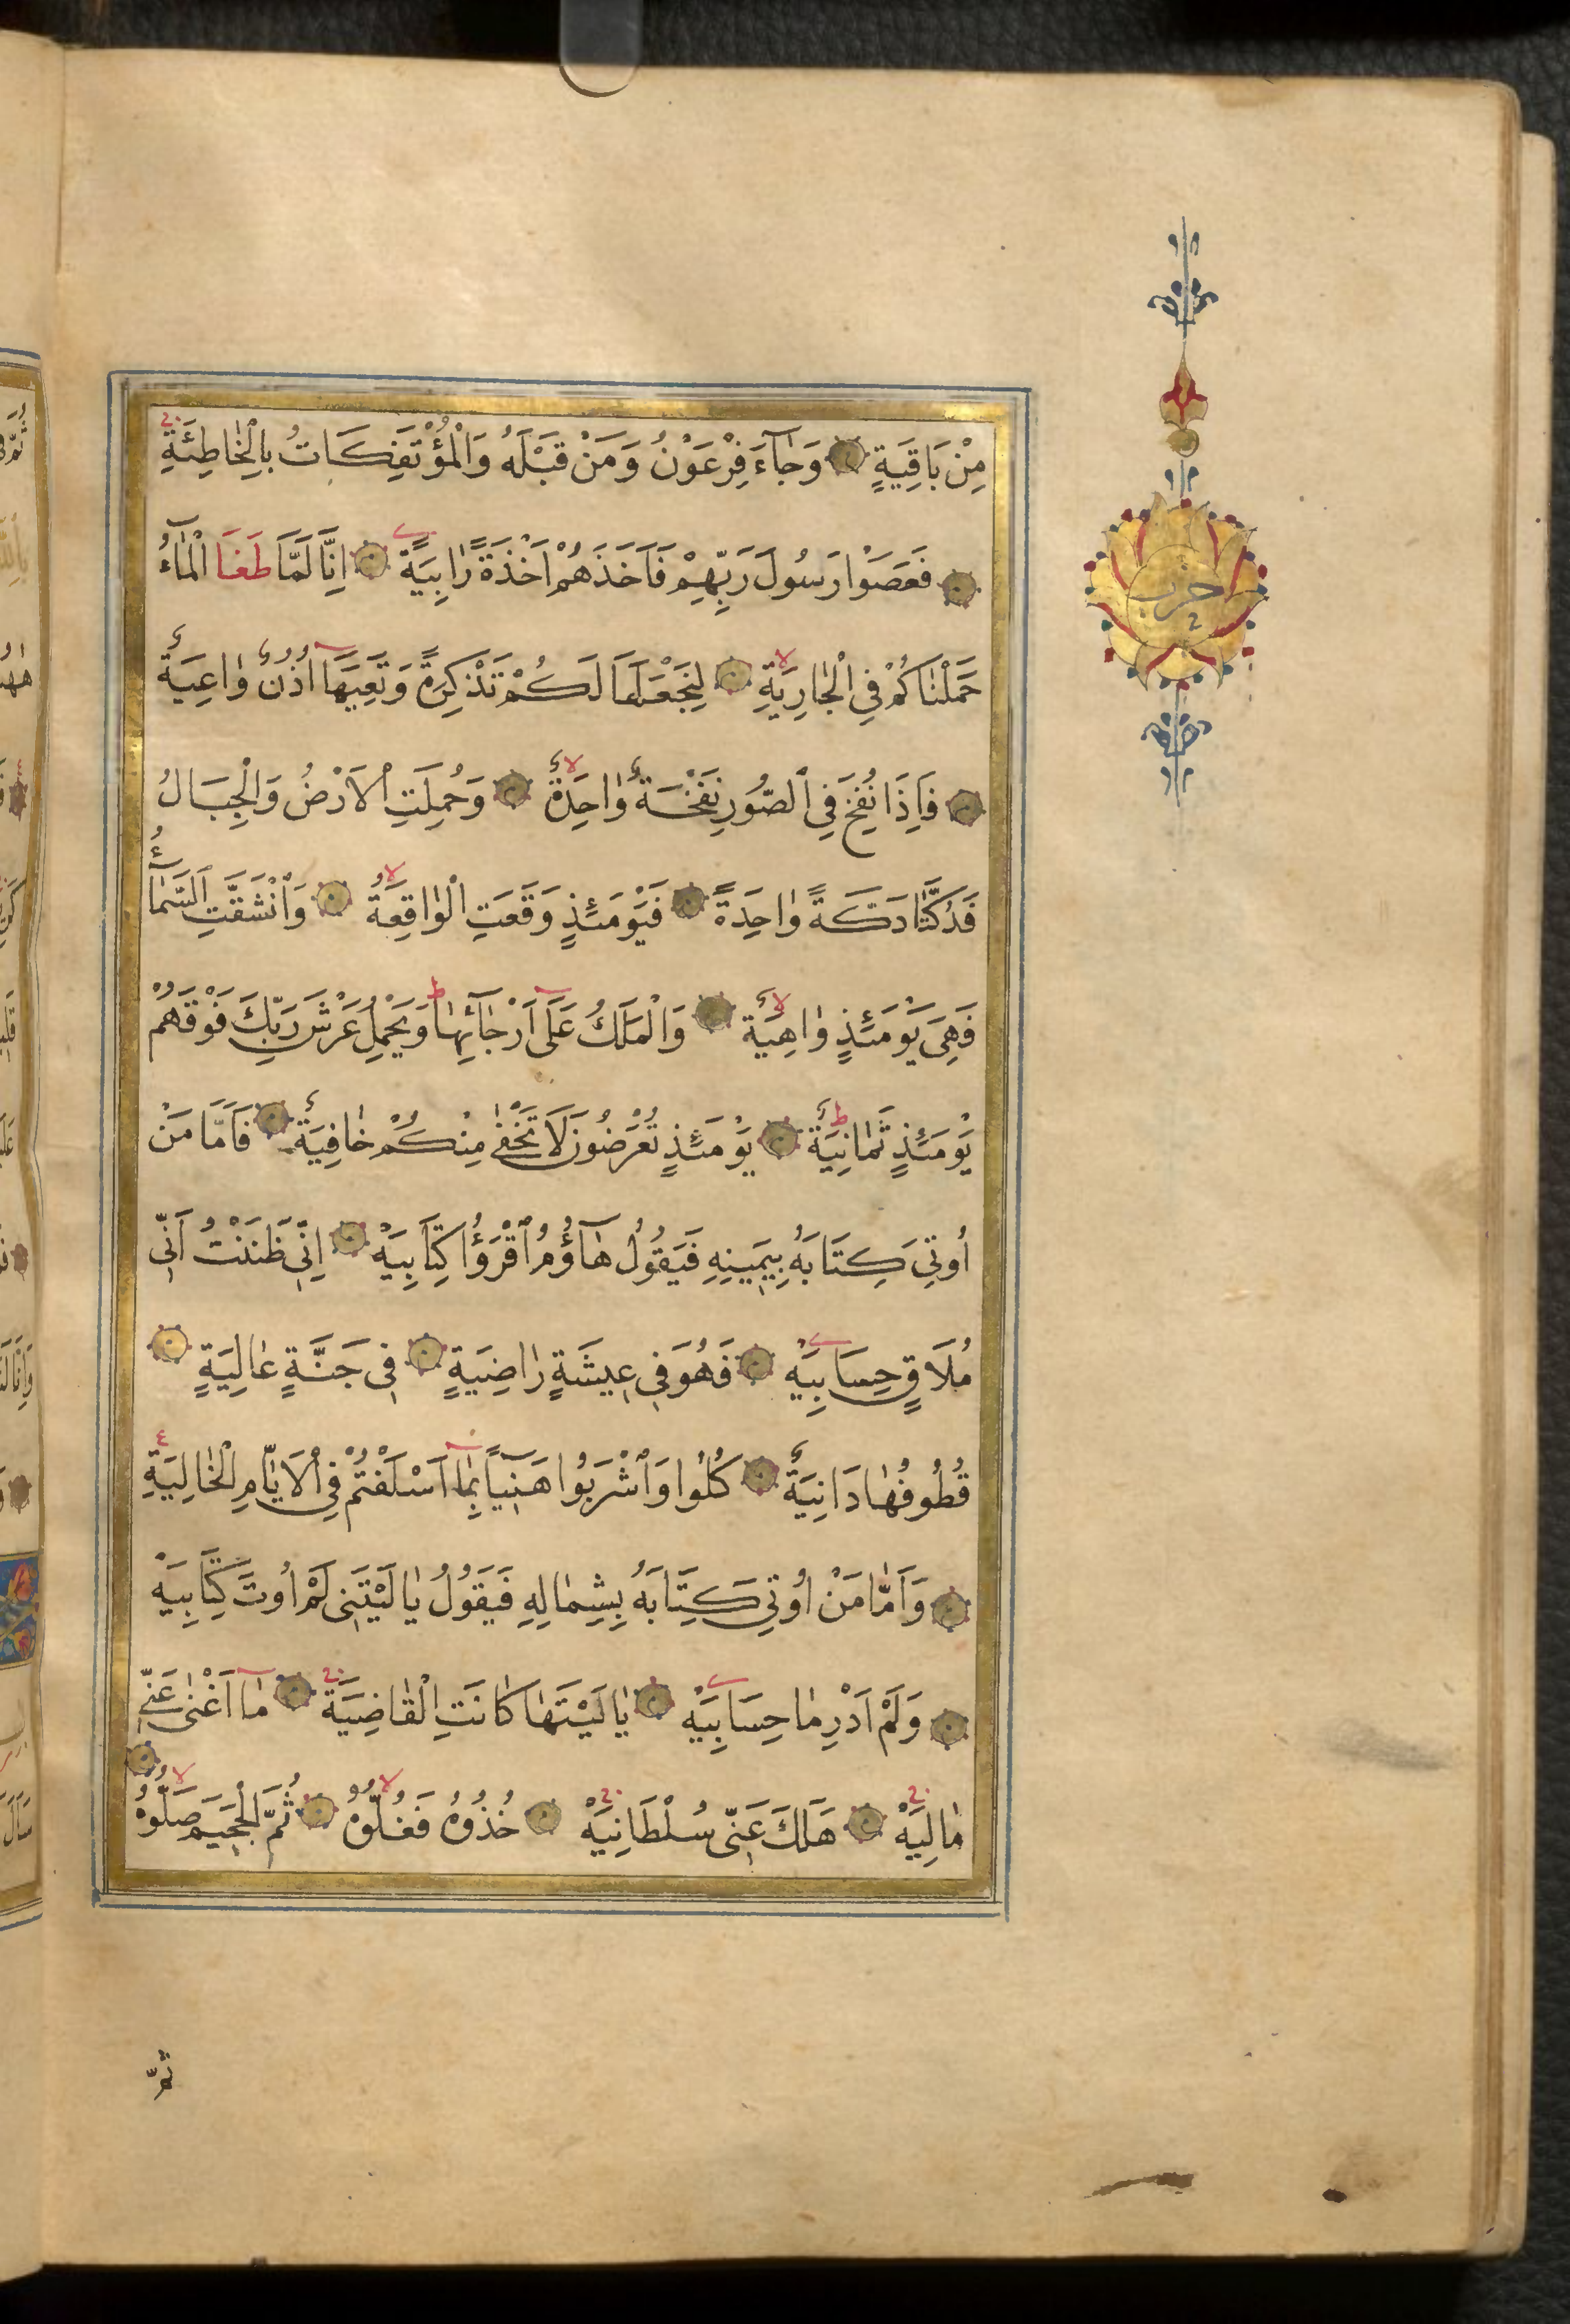 مِنْ بَاقِيَةٍ وَجَآءَ فِرْعَوْنُ وَمَنْ قَبْلَهُ وَالْمُؤْتَفِكَاتُ بِالْخَاطِئَةِ
حزب
فَعَصَوْا رَسُولَ رَبِّهِمْ فَاَخَذَهُمْ اَخْذَةً رَابِيَةً اِنَّا لَمَّا طَغَا الْمَآءُ
حَمَلْنَاكُمْ فِي الْجَارِيَةِ لِنَجْعَلَهَا لَكُمْ تَذْكِرَةً وَتَعِيَهَآ اُذُنٌ وَاعِيَةٌ
فَاِذَا نُفِخَ فِي الصُّورِ نَفْخَةٌ وَاحِدَةٌ وَحُمِلَتِ الْاَرْضُ وَالْجِبَالُ
فَدُكَّتَا دَكَّةً وَاحِدَةً فَيَوْمَئِذٍ وَقَعَتِ الْوَاقِعَةُ وَانْشَقَّتِ السَّمَآءُ
فَهِيَ يَوْمَئِذٍ وَاهِيَةٌ وَالْمَلَكُ عَلٰٓى اَرْجَآئِهَا وَيَحْمِلُ عَرْشَ رَبِّكَ فَوْقَهُمْ
يَوْمَئِذٍ ثَمَانِيَةٌ يَوْمَئِذٍ تُعْرَضُونَ لَا تَخْفٰى مِنْكُمْ خَافِيَةٌ فَاَمَّا مَنْ
اُوتِيَ كِتَابَهُ بِيَمِينِهِ فَيَقُولُ هَآؤُمُ اقْرَؤُا كِتَابِيَهْ اِنِّي ظَنَنْتُ اَنِّي
مُلَاقٍ حِسَابِيَهْ فَهُوَ فِي عِيشَةٍ رَاضِيَةٍ فِي جَنَّةٍ عَالِيَةٍ
قُطُوفُهَا دَانِيَةٌ كُلُوا وَاشْرَبُوا هَنِيٓئًا بِمَآ اَسْلَفْتُمْ فِي الْاَيَّامِ الْخَالِيَةِ
وَاَمَّا مَنْ اُوتِيَ كِتَابَهُ بِشِمَالِهِ فَيَقُولُ يَا لَيْتَنِي لَمْ اُوتَ كِتَابِيَهْ
وَلَمْ اَدْرِ مَا حِسَابِيَهْ يَا لَيْتَهَا كَانَتِ الْقَاضِيَةَ مَآ اَغْنٰى عَنِّي
مَالِيَهْ هَلَكَ عَنِّي سُلْطَانِيَهْ خُذُوهُ فَغُلُّوهُ ثُمَّ الْجَحِيمَ صَلُّوهُ
ثُمَّ